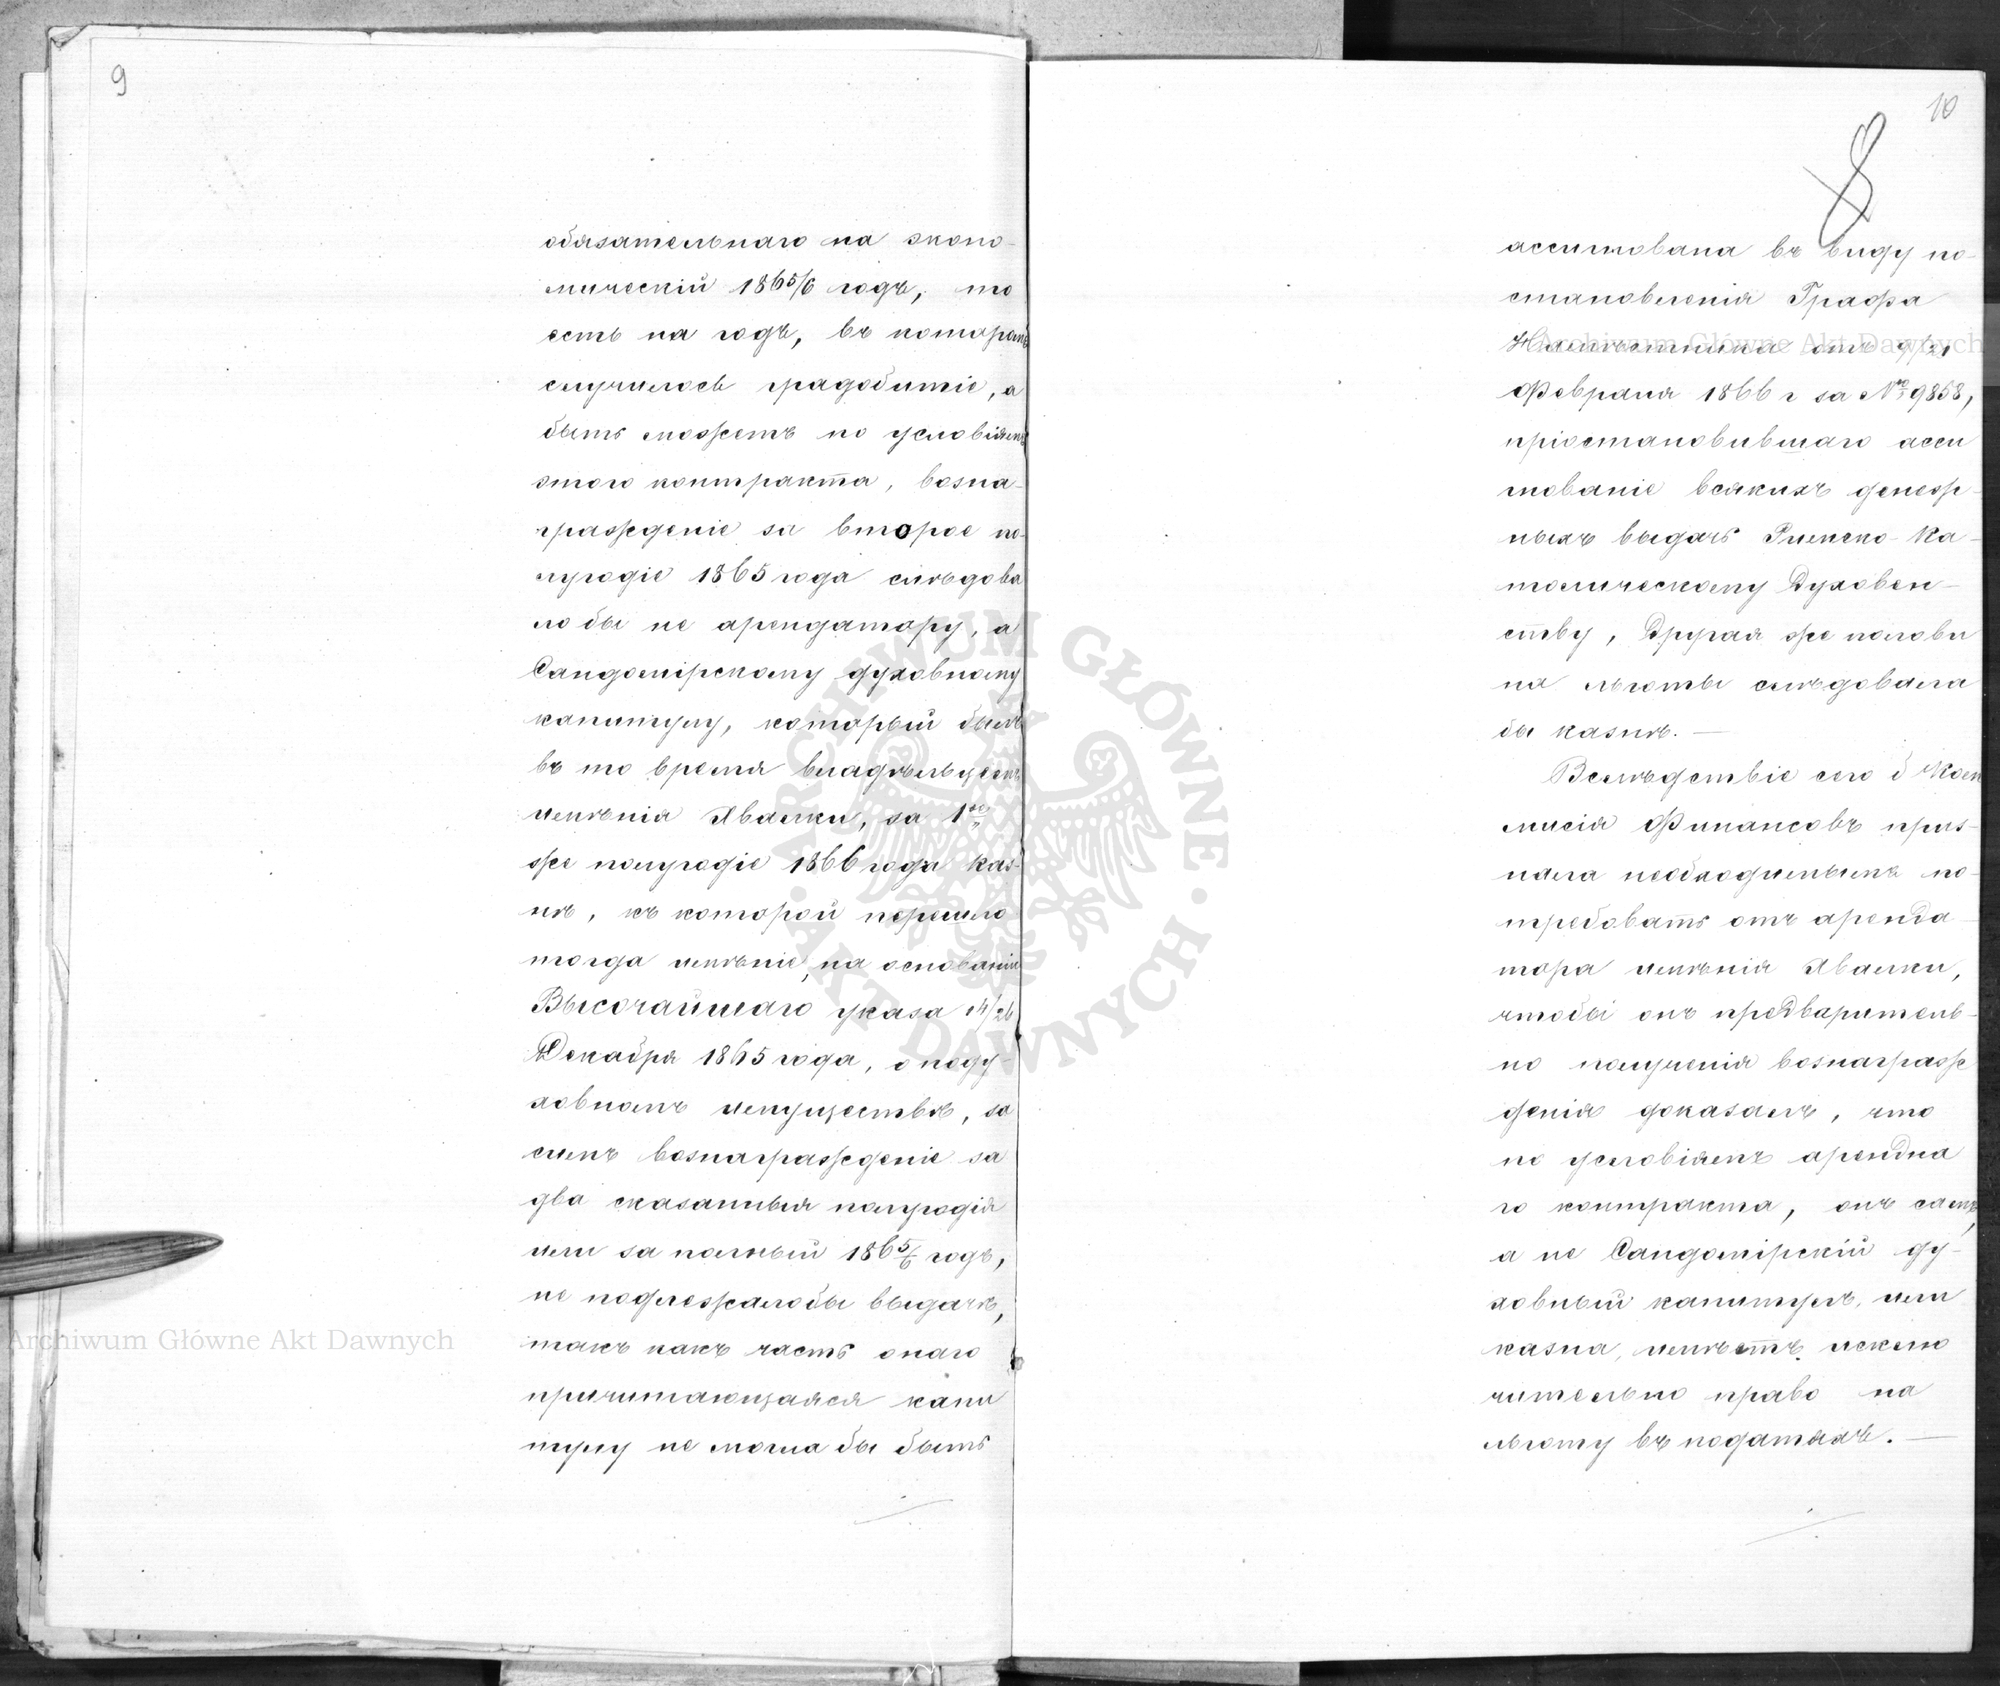 9
обязательнаго на эконо-
мическій 1865/6 годъ, то
есть на годъ, въ которомъ
случилось градобитіе, а
быть можетъ по условіямъ
этого контракта, возна-
гражденіе за второе по-
лугодіе 1865 года слѣдова
ло бы не арендатору, а
Сандомірскому духовному
капитулу, который былъ
въ то время владѣльцемъ
имѣнія Хвалки, за 1ое
же полугодіе 1866 года каз-
нѣ, къ которой перешло
тогда имѣніе, на основаніи
Высочайшаго указа 14/26
Декабря 1865 года, о поду-
ховномъ имуществѣ, за
симъ вознагражденіе за
два сказанныя полугодія
или за полный 1865/6 годъ,
не подлежало бы выдачѣ,
такъ какъ часть онаго
причитающаяся капи
тулу не могла бы быть
10
8
ассигнована въ виду по-
становленія Графа
Намѣстника отъ 9/21
Февраля 1866 г за № 9858,
пріостановившаго асси
гнованіе всякихъ денеж-
ныхъ выдачъ Римско-Ка-
толическому Духовен-
ству, Другая же полови
на льготы слѣдовала
бы казнѣ. —
Вслѣдствіе сего б. Ком
мисія Финансовъ приз-
нала необходимымъ по-
требовать отъ аренда-
тора имѣнія Хвалки,
чтобы онъ предваритель-
но полученія вознаграж
денія доказалъ, что
по условіямъ арендна
го контракта, онъ самъ,
а не Сандомірскій ду-
ховный капитулъ, или
казна, имѣетъ исклю
чительно право на
льготу въ податяхъ. —
Archiwum Główne Akt Dawnych
Archiwum Główne Akt Dawnych
ARCHIWUM GŁÓWNE · AKT DAWNYCH ·